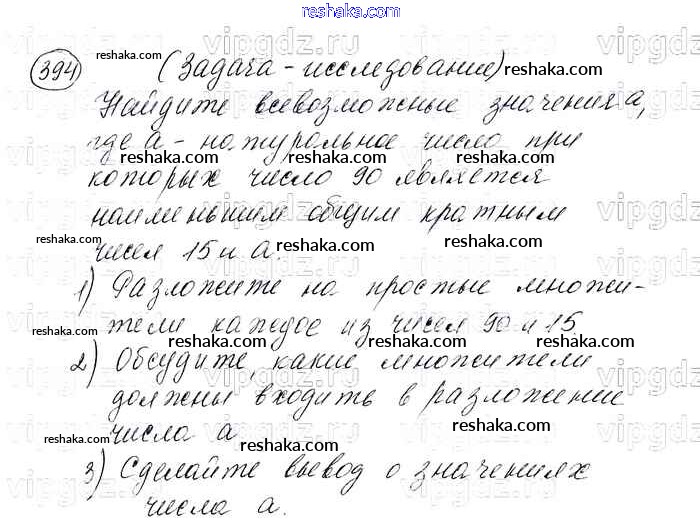 reshaka.com
394 (Задача - исследование) reshaka.com
reshaka.com
Найдите всевозможные значения а,
где а - натуральное число при
reshaka.com reshaka.com reshaka.com
которых число 90 является
наименьшим общим кратным
reshaka.com
чисел 15 и а. reshaka.com reshaka.com
1) Разложите на простые множи-
reshaka.com reshaka.com reshaka.com
тели каждое из чисел 90 и 15
2) Обсудите, какие множители
reshaka.com reshaka.com
должны входить в разложение
числа а reshaka.com
reshaka.com reshaka.com
3) Сделайте вывод о значениях
числа а.
reshaka.com reshaka.com
vipgdz.ru